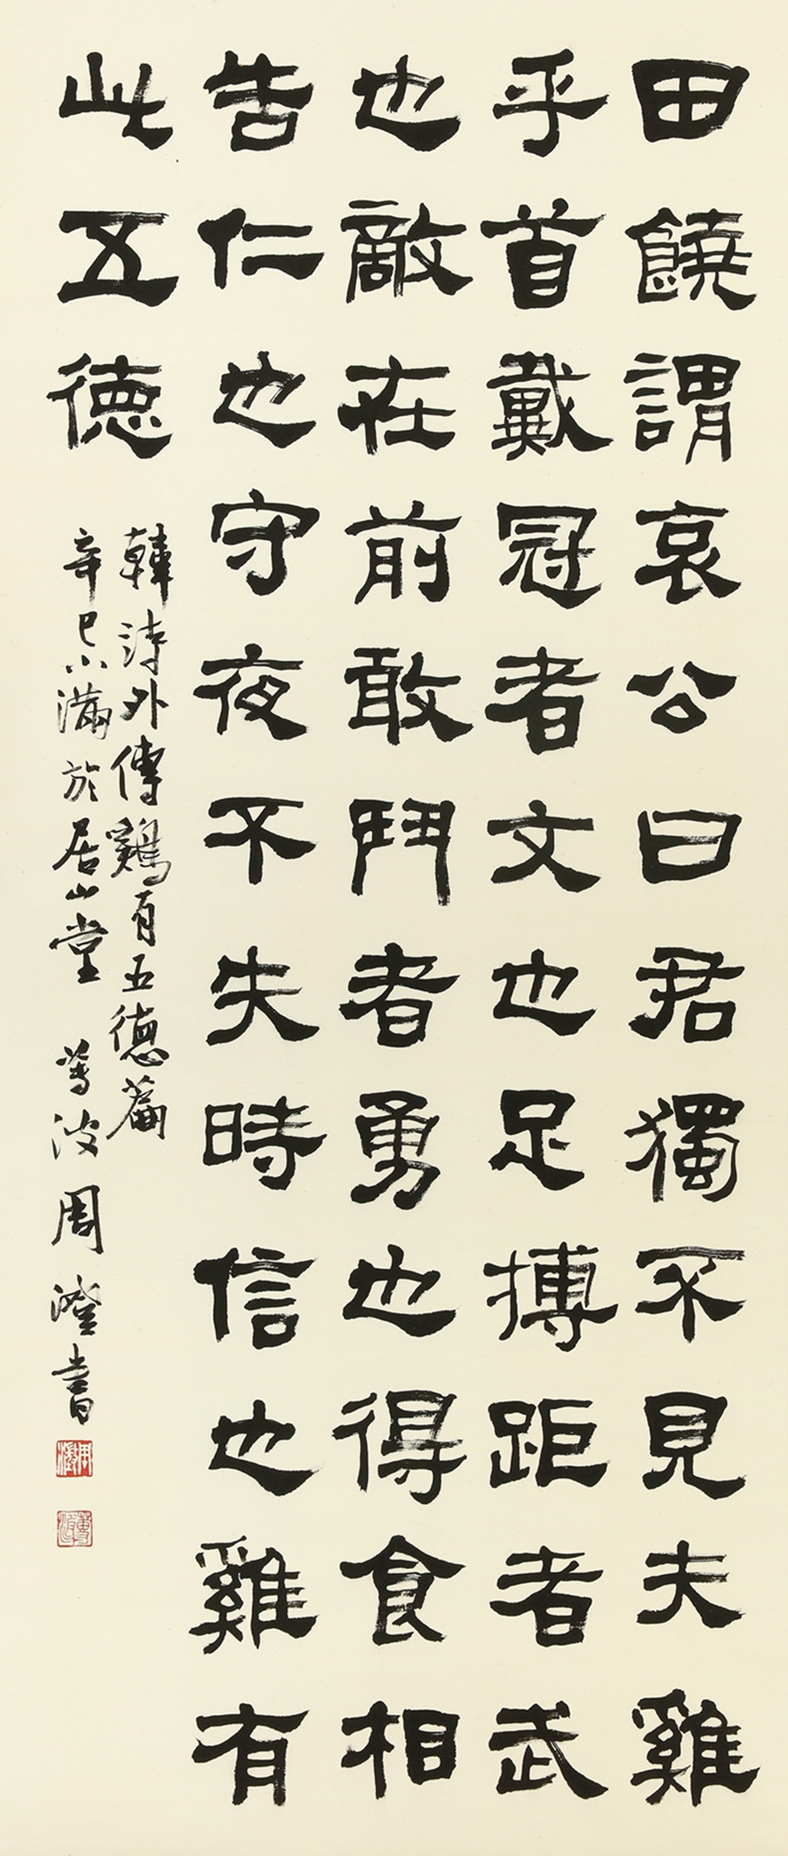 田饒謂哀公曰君獨不見夫雞
乎首戴冠者文也足搏距者武
也敵在前敢鬥者勇也得食相
告仁也守夜不失時信也雞有
此五德
韓詩外傳鷄有五德篇
辛巳小滿於居山堂 蓴波 周澄書
周澄